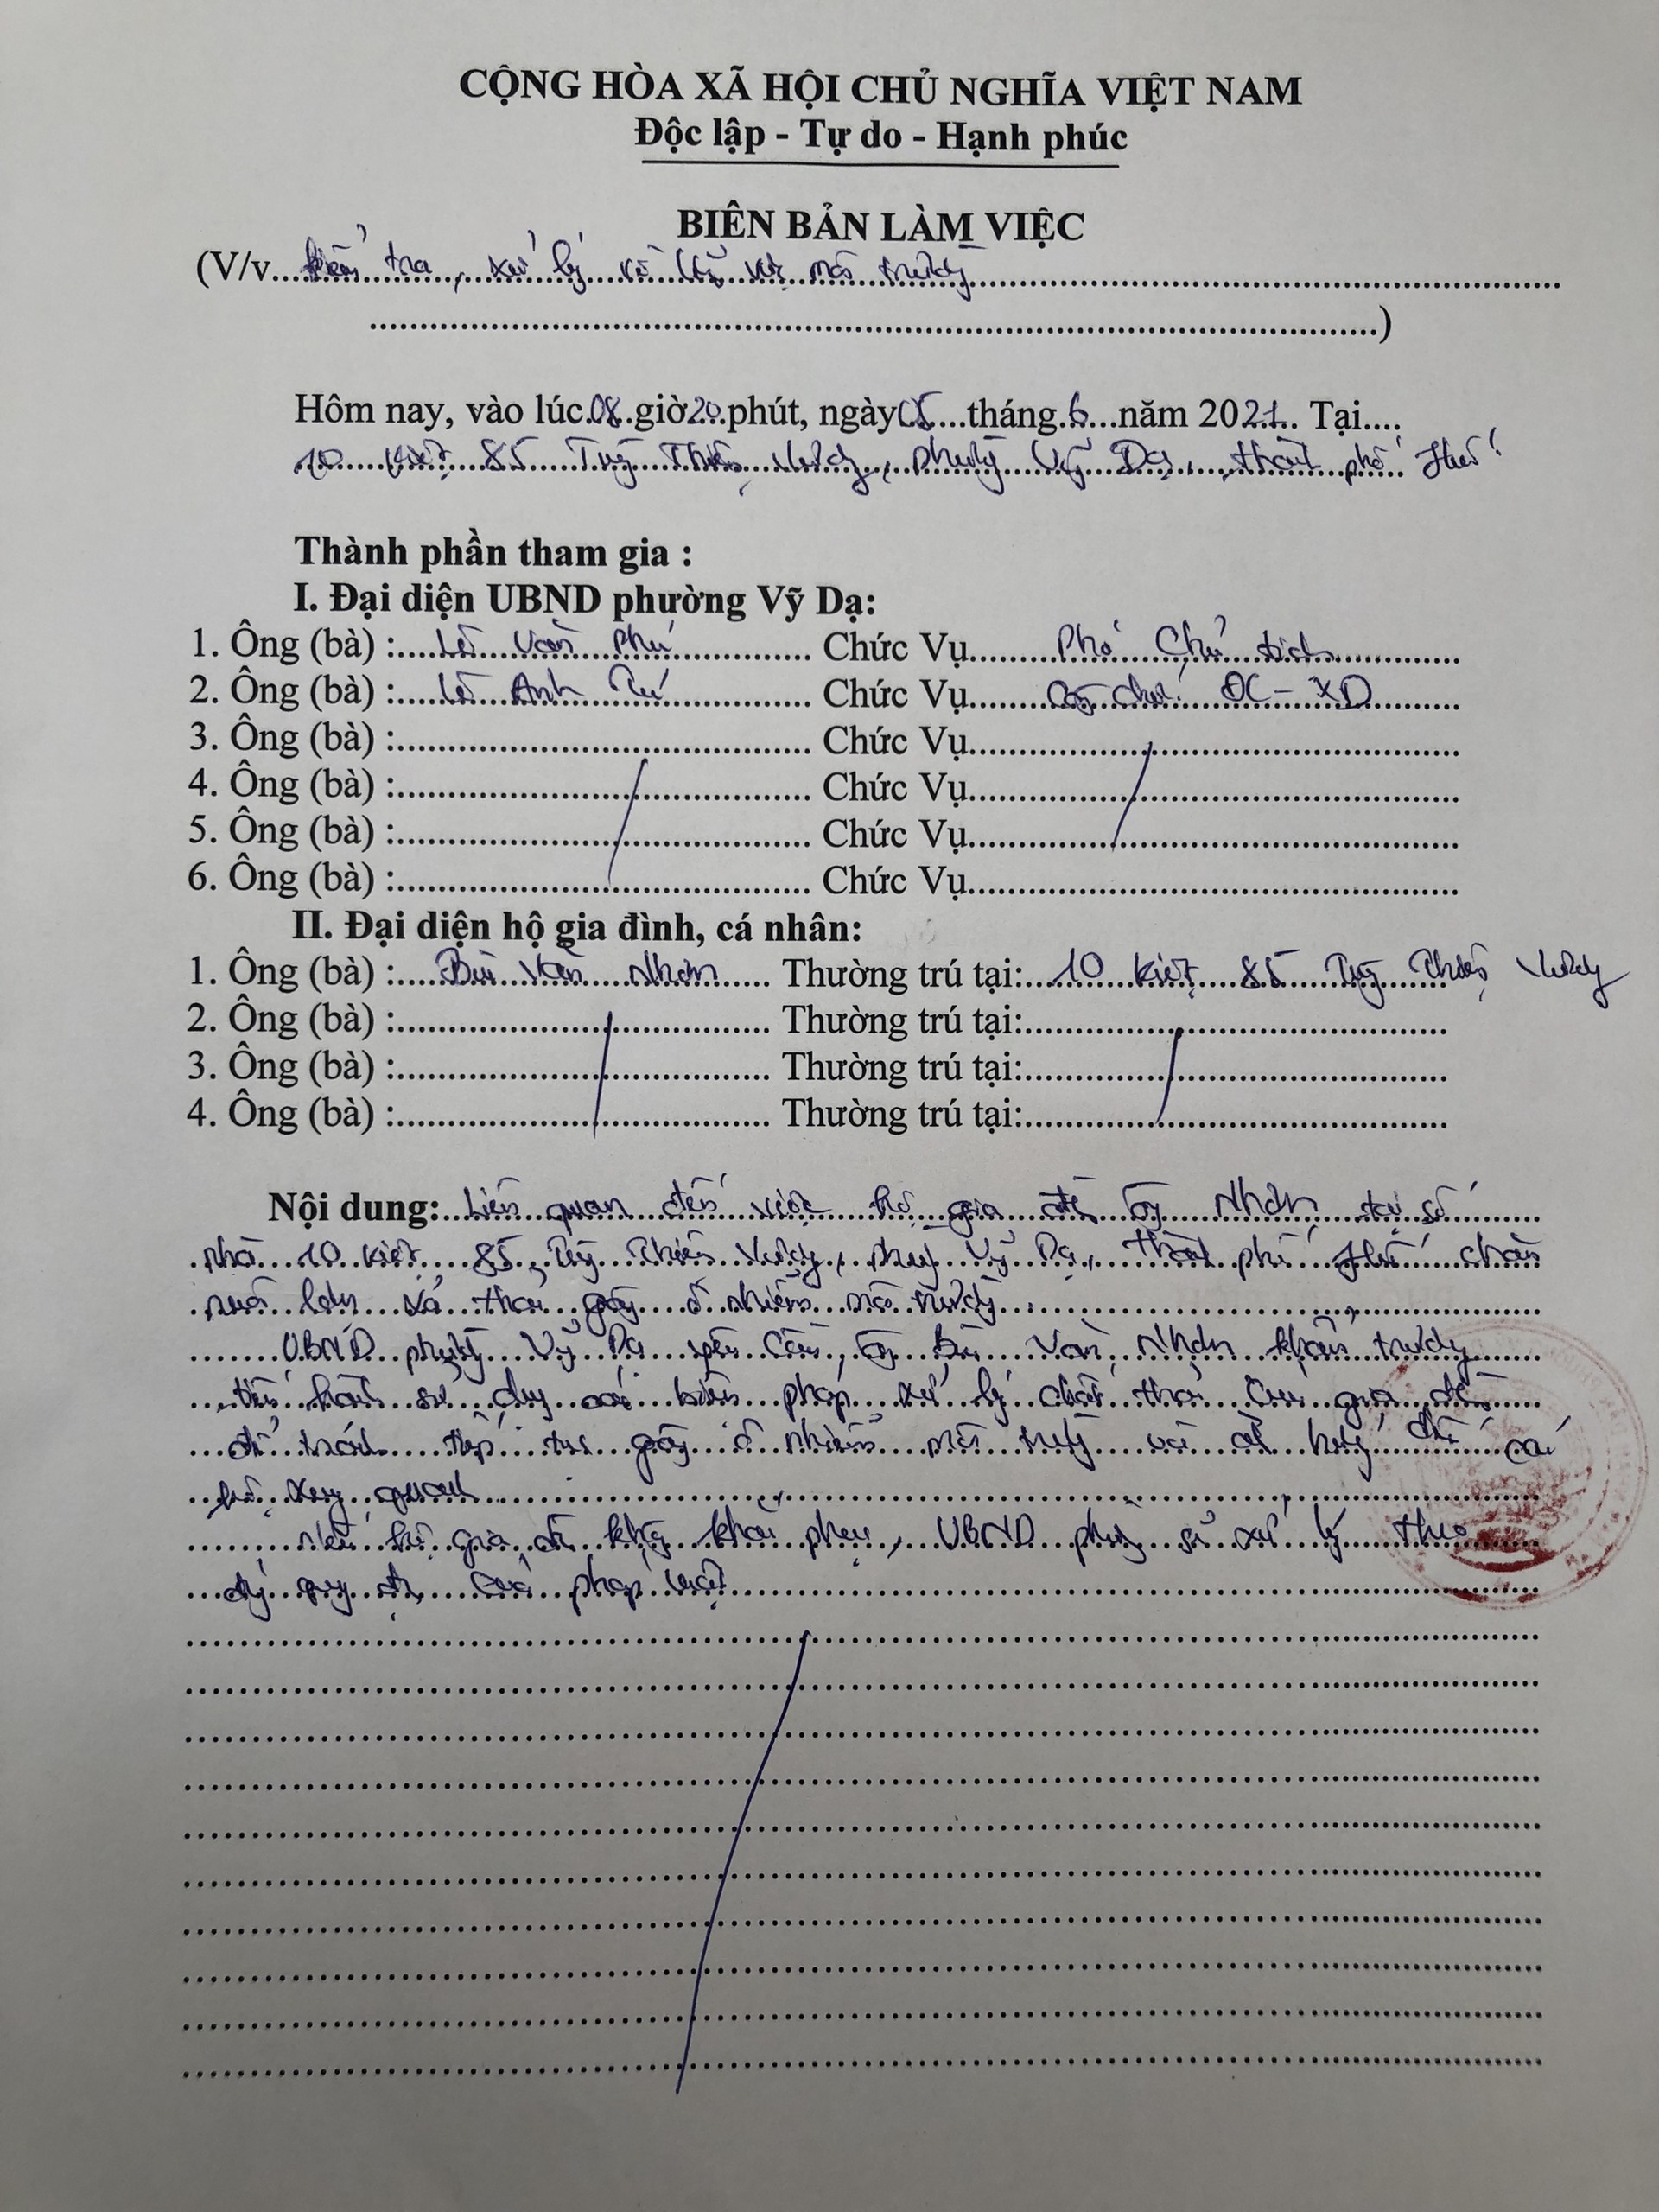 CỘNG HÒA XÃ HỘI CHỦ NGHĨA VIỆT NAM
Độc lập - Tự do - Hạnh phúc
BIÊN BẢN LÀM VIỆC
(V/v...kiểm tra, xử lý về lĩnh vực môi trường...
...)
Hôm nay, vào lúc.08.giờ20.phút, ngày05...tháng.6...năm 2021.. Tại....
10 kiệt 85 Tùng Thiện Vương, phường Vỹ Dạ, thành phố Huế
Thành phần tham gia :
I. Đại diện UBND phường Vỹ Dạ:
1. Ông (bà) :....Lê Văn Phú.... Chức Vụ....Phó Chủ tịch....
2. Ông (bà) :....Lê Anh Tú.... Chức Vụ....Công chức ĐC-XD....
3. Ông (bà) :.... Chức Vụ....
4. Ông (bà) :.... Chức Vụ....
5. Ông (bà) :.... Chức Vụ....
6. Ông (bà) :.... Chức Vụ....
II. Đại diện hộ gia đình, cá nhân:
1. Ông (bà) :....Bùi Văn Nhơn.... Thường trú tại:....10 kiệt 85 Tùng Thiện Vương
2. Ông (bà) :.... Thường trú tại:....
3. Ông (bà) :.... Thường trú tại:....
4. Ông (bà) :.... Thường trú tại:....
Nội dung:...Liên quan đến việc hộ gia đình ông Nhơn tại số
nhà 10 kiệt 85 Tùng Thiện Vương, phường Vỹ Dạ, thành phố Huế chăn
nuôi lợn xả thải gây ô nhiễm môi trường.
UBND phường Vỹ Dạ yêu cầu ông Bùi Văn Nhơn khẩn trương
tiến hành sử dụng các biện pháp xử lý chất thải của gia đình
để tránh tiếp tục gây ô nhiễm môi trường và ảnh hưởng đến các
hộ xung quanh
nếu hộ gia đình không khắc phục, UBND phường sẽ xử lý theo
đúng quy định của pháp luật